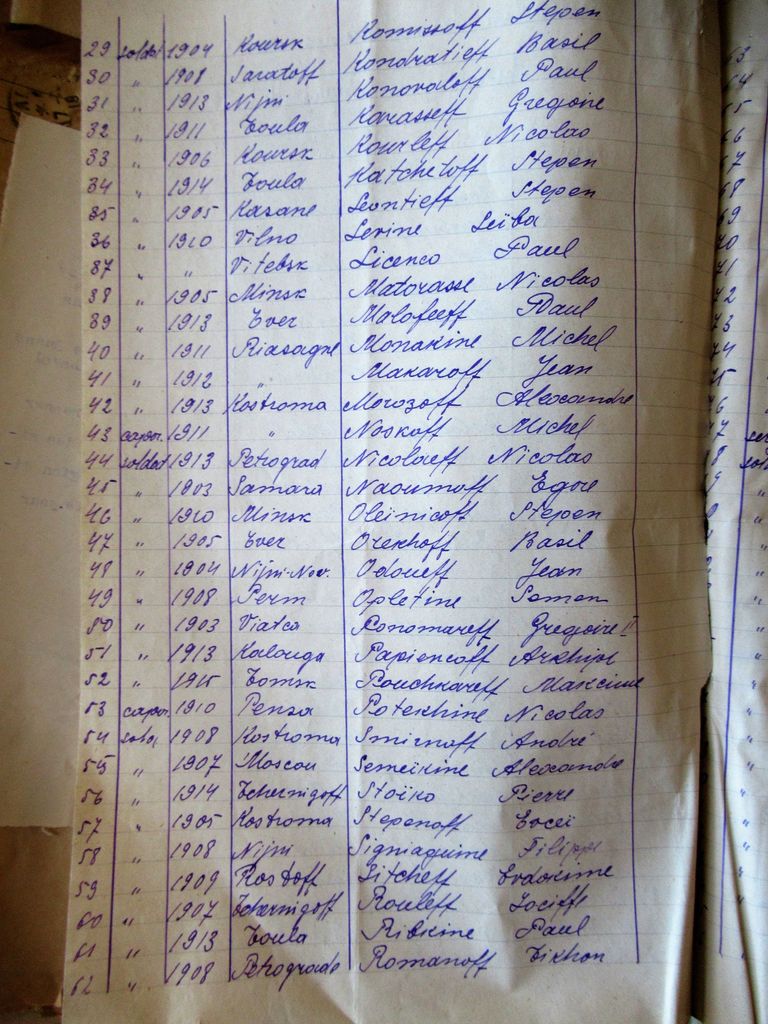 29 soldat 1904 Koursk Komissoff Stepen
30 " 1908 Saratoff Kondratieff Basil
31 " 1913 Nijni Konovaloff Paul
32 " 1911 Toula Karasseff Gregoire
33 " 1906 Koursk Kourleff Nicolas
34 " 1914 Toula Katchetoff Stepen
35 " 1905 Kasane Leontieff Stepen
36 " 1910 Vilno Levine Leïba
37 " " Vitebsk Licenco Paul
38 " 1905 Minsk Matorasse Nicolas
39 " 1913 Tver Malofeeff Paul
40 " 1911 Riasagne Monakine Michel
41 " 1912 " Makaroff Jean
42 " 1913 Kostroma Morozoff Alexandre
43 capor. 1911 " Noskoff Michel
44 soldat 1913 Petrograd Nicolaeff Nicolas
45 " 1903 Samara Naoumoff Egor
46 " 1910 Minsk Oleïnicoff Stepen
47 " 1905 Tver Orekhoff Basil
48 " 1904 Nijni-Nov. Odoueff Jean
49 " 1908 Perm Opletine Semen
50 " 1903 Viatca Ponomareff Gregoire II
51 " 1913 Kalouga Papiencoff Arkhipe
52 " 1915 Tomsk Pouchkareff Maxime
53 capor. 1910 Pensa Potekhine Nicolas
54 solda 1908 Kostroma Smirnoff André
55 " 1907 Moscou Semeikine Alexandre
56 " 1914 Tchernigoff Stoïko Pierre
57 " 1905 Kostroma Stepanoff Evceï
58 " 1908 Nijni Signiaguine Filippe
59 " 1909 Rostoff Sitcheff Evdokime
60 " 1907 Tchernigoff Rouleff Jociffe
61 " 1913 Toula Ribkine Paul
62 " 1908 Petrograde Romanoff Tikhon